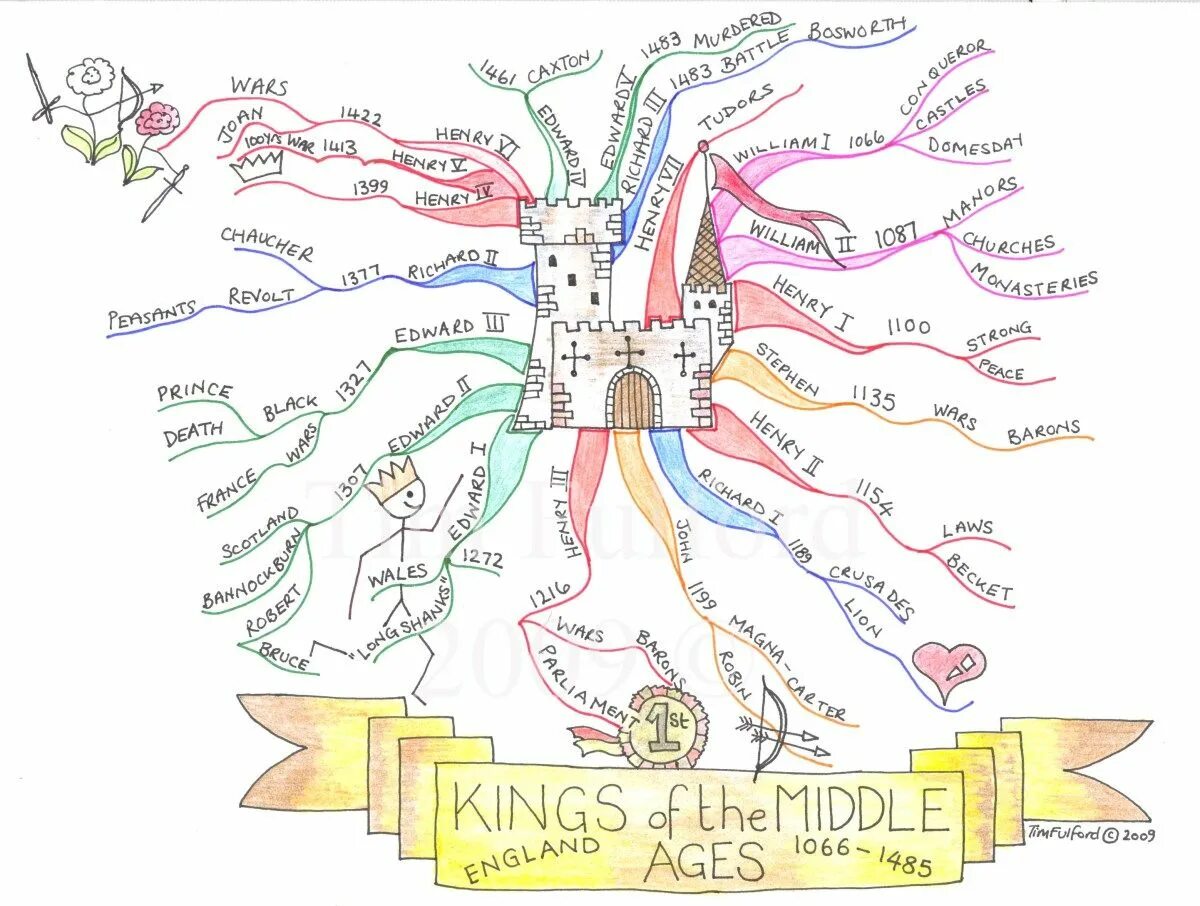 WILLIAM I 1066
CONQUEROR
CASTLES
DOMESDAY
WILLIAM II 1087
MANORS
CHURCHES
MONASTERIES
HENRY I 1100
STRONG
PEACE
STEPHEN 1135 WARS BARONS
HENRY II 1154
LAWS
BECKET
RICHARD I 1189
CRUSADES
LION
JOHN 1199
MAGNA-CARTER
ROBIN
HENRY III 1216
WARS BARONS
PARLIAMENT
1st
EDWARD I 1272
WALES
"LONG SHANKS"
EDWARD II 1307
SCOTLAND
BANNOCKBURN
ROBERT
BRUCE
EDWARD III 1327
BLACK
PRINCE
DEATH
FRANCE WARS
RICHARD II 1377
CHAUCHER
PEASANTS REVOLT
HENRY IV 1399
HENRY V 1413 100YRS WAR
HENRY VI 1422
JOAN
WARS
EDWARD IV
1461 CAXTON
EDWARD V 1483 MURDERED
RICHARD III 1483 BATTLE BOSWORTH
HENRY VII TUDORS
KINGS of the MIDDLE
AGES
ENGLAND
1066-1485
Tim Fulford © 2009
Tim Fulford
2009 ©